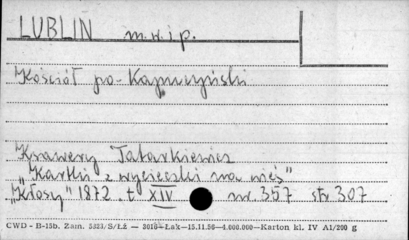 LUBLIN m. w. i p.
Kościół po-Kapucyński
Ksawery Tatarkiewicz
"Kartki z wycieczki na wieś"
"Kłosy" 1872. t XIV nr. 357 str 307
CWD - B-15b. Zam. 5323/S/Łż — 3010—Łak—15.11.56—4.000.000—Karton kl. IV A1/200 g